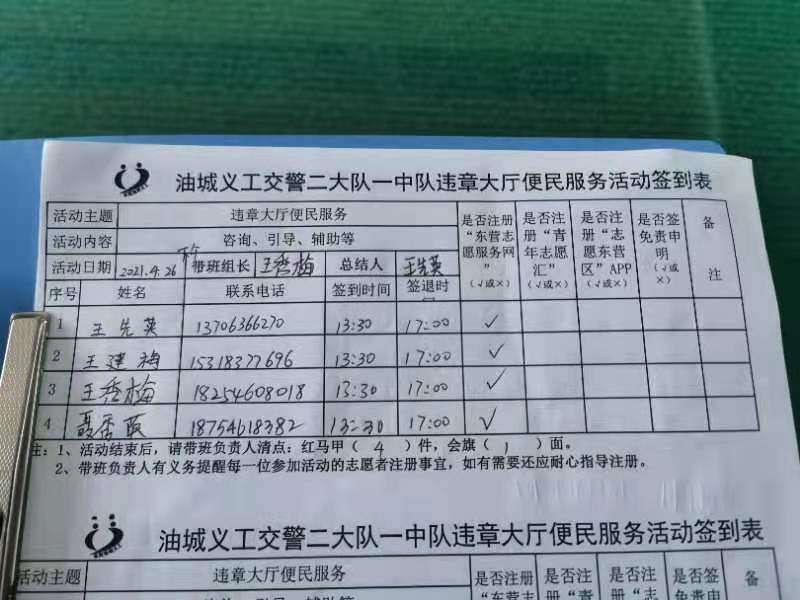 油城义工交警二大队一中队违章大厅便民服务活动签到表
活动主题 违章大厅便民服务 是否注册“东营志愿服务网”(√或×) 是否注册“青年志愿汇”(√或×) 是否注册“志愿东营区”APP(√或×) 是否签免责申明(√或×) 备注
活动内容 咨询、引导、辅助等
活动日期 2021.4.26 下午 带班组长 王秀梅 总结人 王先英
序号 姓名 联系电话 签到时间 签退时间
1 王先英 13706366270 13:30 17:00 √
2 王建梅 15318377696 13:30 17:00 √
3 王秀梅 18254608018 13:30 17:00 √
4 聂秀霞 18754618382 13:30 17:00 √
注：1、活动结束后，请带班负责人清点：红马甲（4）件，会旗（1）面。
2、带班负责人有义务提醒每一位参加活动的志愿者注册事宜，如有需要还应耐心指导注册。
油城义工交警二大队一中队违章大厅便民服务活动签到表
活动主题 违章大厅便民服务 是否注册“东营志 是否注册“青 是否注册“志 是否签免责申 备